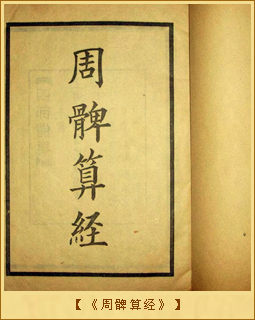 周髀算経
【《周髀算经》】